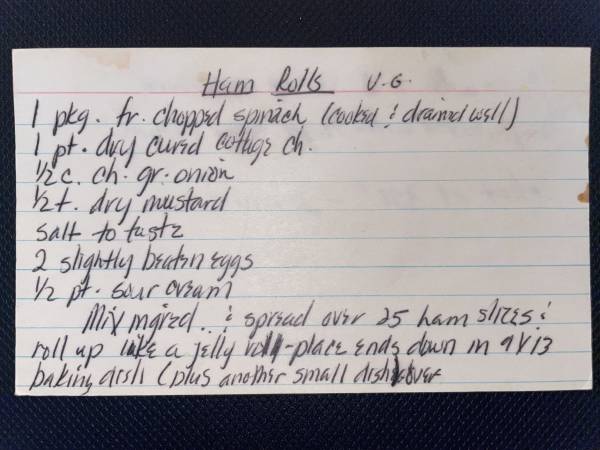 Ham Rolls V.G.
1 pkg. fr. chopped spinach (cooked & drained well)
1 pt. dry curd cottage ch.
1/2 c. ch. gr. onion
1/2 t. dry mustard
salt to taste
2 slightly beaten eggs
1/2 pt. sour cream
Mix ingred. & spread over 25 ham slices &
roll up like a jelly roll - place ends down in 9x13
baking dish (plus another small dish) over